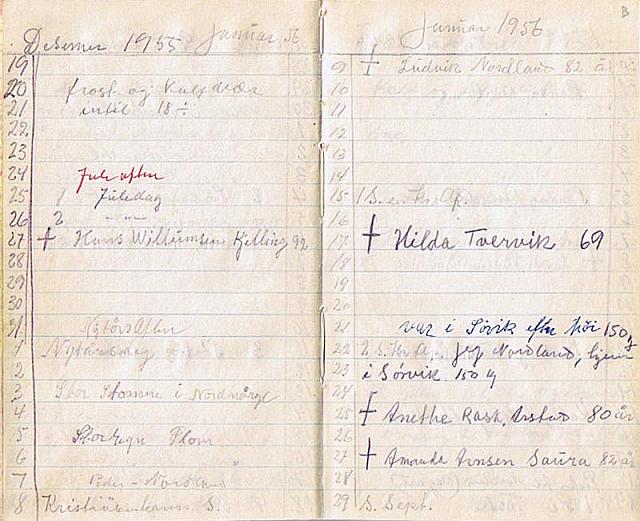 Desemer 1955 Januar 56
19
20 frost og kulvær
21 intil 18 ÷
22
23
24 Juleaften
25 1 Juledag
26 2 -"-
27 † Hans Willumsen Kjelling 92
28
29
30
31 Nytårsaften
1 Nytårsdag
2
3 Stor Storm i Nordnorge
4
5 Storregn Flom
6
7 Peder - Nordland
8 S.
Januar 1956
9 † Ludvik Nordland 82 år
10
11
12
13
14
15 1 S. e. Kr. Åp.
16
17 † Hilda Tvervik 69
18
19
20
21 var i Sørvik efter Höi 150 g
22 2 S. Nordland, hjem
23 i Sørvik 150 g
24
25 † Anethe Rask, Arstad 80 år
26
27 † Amanda Arnsen Saura 82 år
28
29 S. Sept.